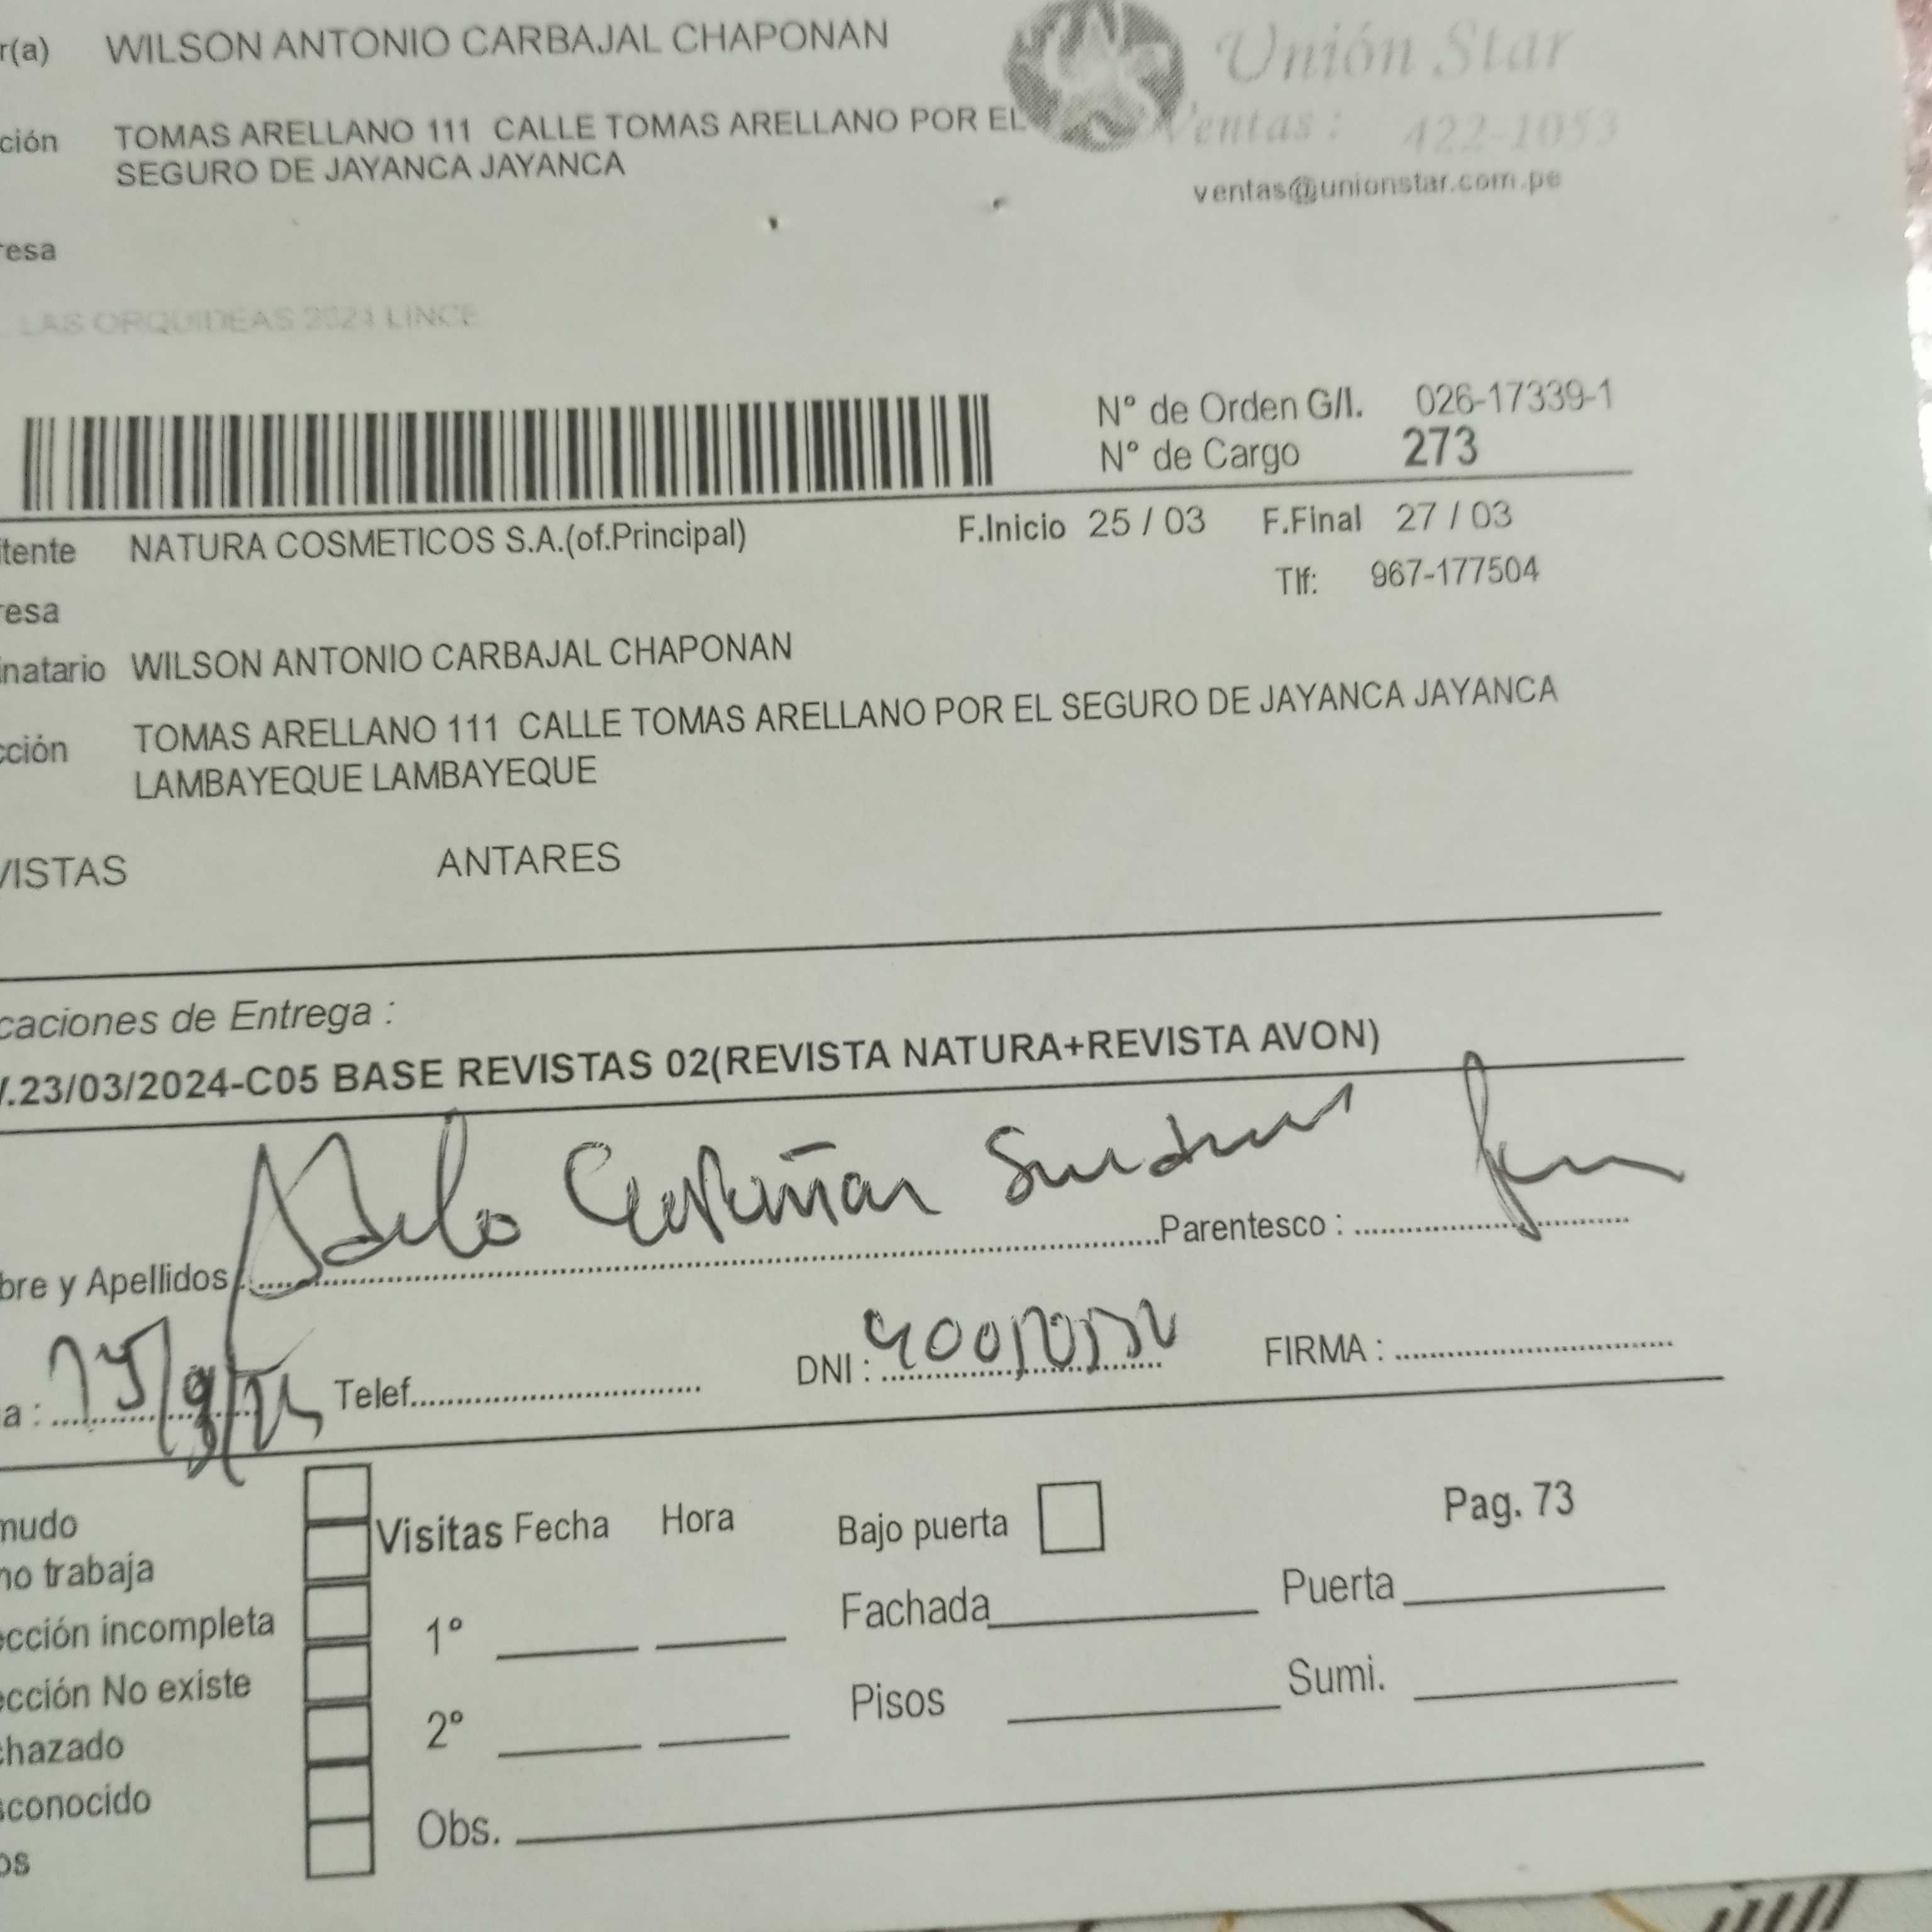 r(a) WILSON ANTONIO CARBAJAL CHAPONAN
Unión Star
ción TOMAS ARELLANO 111 CALLE TOMAS ARELLANO POR EL
Ventas : 422-1053
SEGURO DE JAYANCA JAYANCA
ventas@unionstar.com.pe
resa
LAS ORQUIDEAS 2024 LINCE
N° de Orden G/I. 026-17339-1
N° de Cargo 273
itente NATURA COSMETICOS S.A.(of.Principal) F.Inicio 25 / 03 F.Final 27 / 03
Tlf: 967-177504
resa
inatario WILSON ANTONIO CARBAJAL CHAPONAN
cción TOMAS ARELLANO 111 CALLE TOMAS ARELLANO POR EL SEGURO DE JAYANCA JAYANCA
LAMBAYEQUE LAMBAYEQUE
VISTAS ANTARES
caciones de Entrega :
/.23/03/2024-C05 BASE REVISTAS 02(REVISTA NATURA+REVISTA AVON)
bre y Apellidos Parentesco :
a : Telef. DNI : FIRMA :
mudo
Visitas Fecha Hora Bajo puerta Pag. 73
no trabaja
ección incompleta 1° Fachada Puerta
ección No existe
2° Pisos Sumi.
chazado
sconocido
Obs.
os